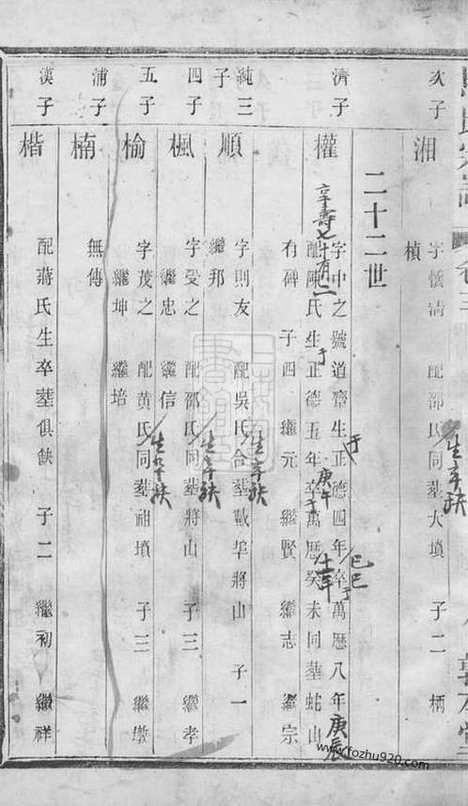 亥子
湘
字懷清 配邵氏同塟大墳 子二 楠
生卒缺
楨
二十二世
濟子
權
字中之號道齊生正德四年卒萬曆八年
于 己巳 庚辰
配陳氏生正德五年卒萬曆癸未同塟蛇山
辛壽七十有二
于 庚午
有碑 子四 繼元 繼賢 繼志 繼宗
純三子
順
字則友 配吳氏合塟戴㘰將山 子一
生卒缺
繼邦
四子
楓
字受之 配邵氏同塟將山 子三 繼孝
生卒缺
繼忠 繼信
五子
榆
字茂之 配黄氏同塟祖墳 子三 繼墩
生卒缺
繼坤 繼培
浦子
楠
無傳
漢子
楷
配蔣氏生卒塟俱缺 子二 繼初 繼祥
www.fozhu920.com